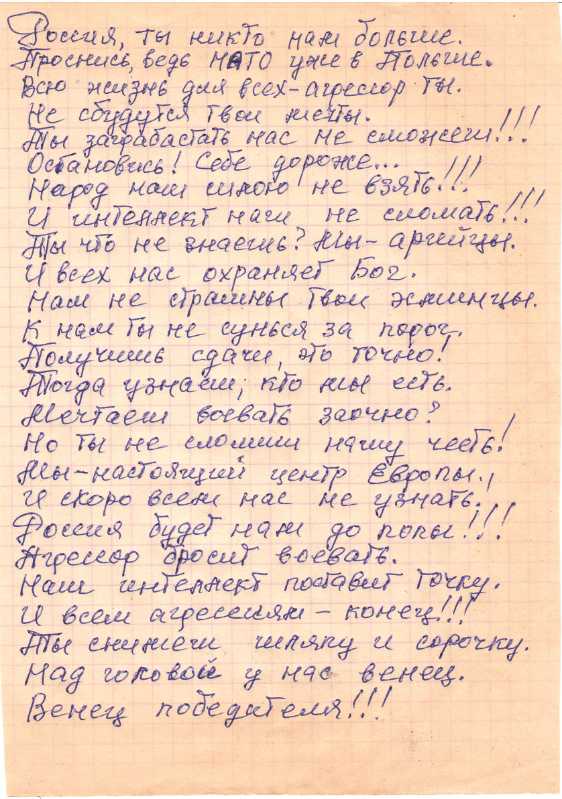 Россия, ты никто нам больше.
Проснись, ведь НАТО уже в Польше.
Всю жизнь для всех-агресор ты.
Не сбудутся твои мечты.
Ты заграбастать нас не сможеш!!!
Остановись! Себе дороже...
Народ наш силою не взять!!!
И интеллект наш не сломать!!!
Ты что не знаешь? Мы-арийцы.
И всех нас охраняет Бог.
Нам не страшны твои эсминцы.
К нам ты не сунься за порог.
Получишь сдачи, это точно!
Тогда узнаеш, кто мы есть.
Мечтаеш воевать заочно?
Но ты не сломиш нашу честь!
Мы-настоящий центр Европы.,
И скоро всем нас не узнать.
Россия будет нам до попы!!!
Агрессор бросит воевать.
Наш интеллект поставит точку.
И всем агрессиям - конец!!!
Ты снимеш шляпу и сорочку.
Над головой у нас венец.
Венец победителя!!!